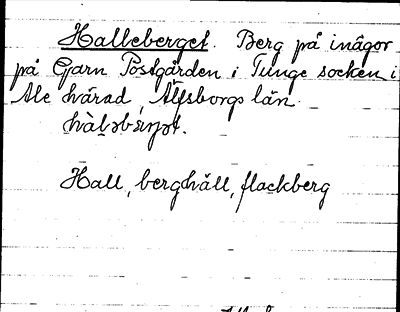 Halleberget. Berg på inägor
på Gjarn Postgården i Tunge socken i
Ale härad, Älfsborgs län.
Hall, berghäll, flackberg